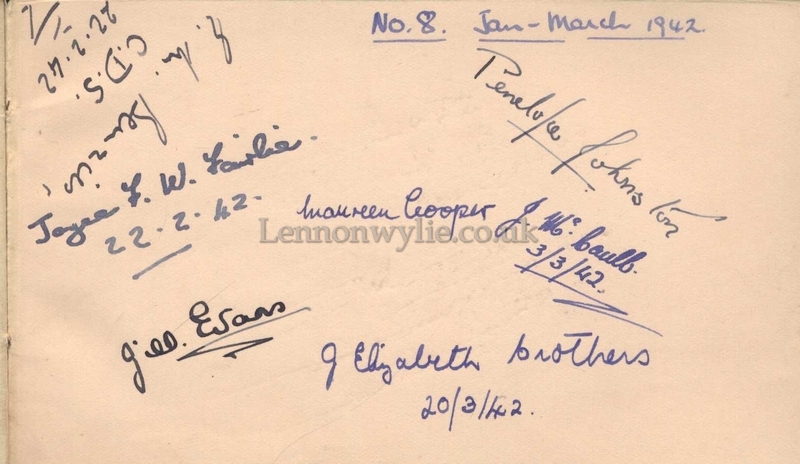 No. 8. Jan - March 1942.
22.2.42
C.D.S.
Penelope Johnston
Joyce F. W. Fairlie.
22.2.42.
Maureen Cooper
J Mc. Caull.
3/3/42.
Lennonwylie.co.uk
Jill. Evans
J Elizabeth Brothers
20/3/42.